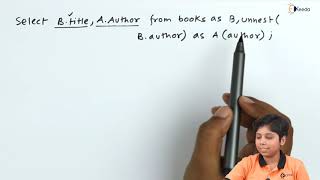 Select B.title, A.Author from books as B, unnest(
B.author) as A (author) ;
Ekeeda